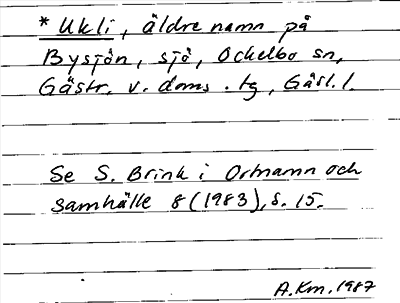 * Ukli, äldre namn på
Bysjön, sjö, Ockelbo sn,
Gästr. v. doms. tg, Gävl. l.
Se S. Brink i Ortnamn och
samhälle 8 (1983), s. 15.
A.Km. 1987